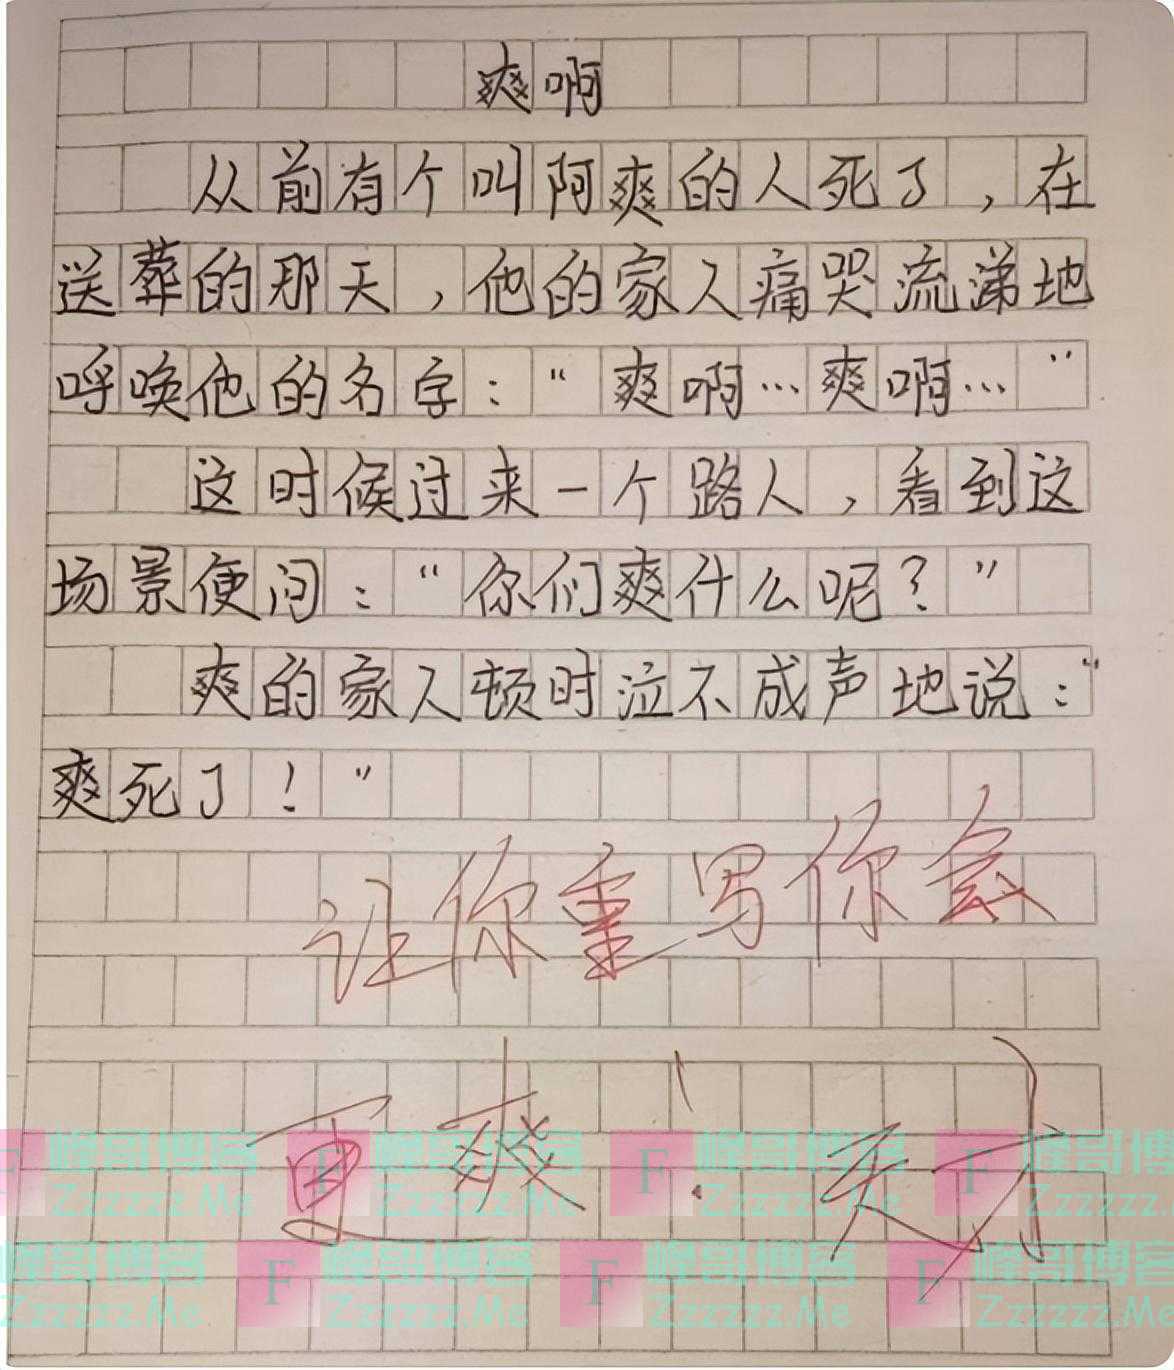 爽啊
从前有个叫阿爽的人死了，在
送葬的那天，他的家人痛哭流涕地
呼唤他的名字：“爽啊…爽啊…”
这时候过来一个路人，看到这
场景便问：“你们爽什么呢？”
爽的家人顿时泣不成声地说：“
爽死了！”
让你重写你会
更爽！天才
F 峰哥博客 F 峰哥博客 F 峰哥博客 F 峰哥博
Zzzzzz.Me Zzzzzz.Me Zzzzzz.Me Zzzzzz.
峰哥博客 F 峰哥博客 F 峰哥博客 F 峰哥博客
Zzzzzz.Me Zzzzzz.Me Zzzzzz.Me Zzzzzz.Me